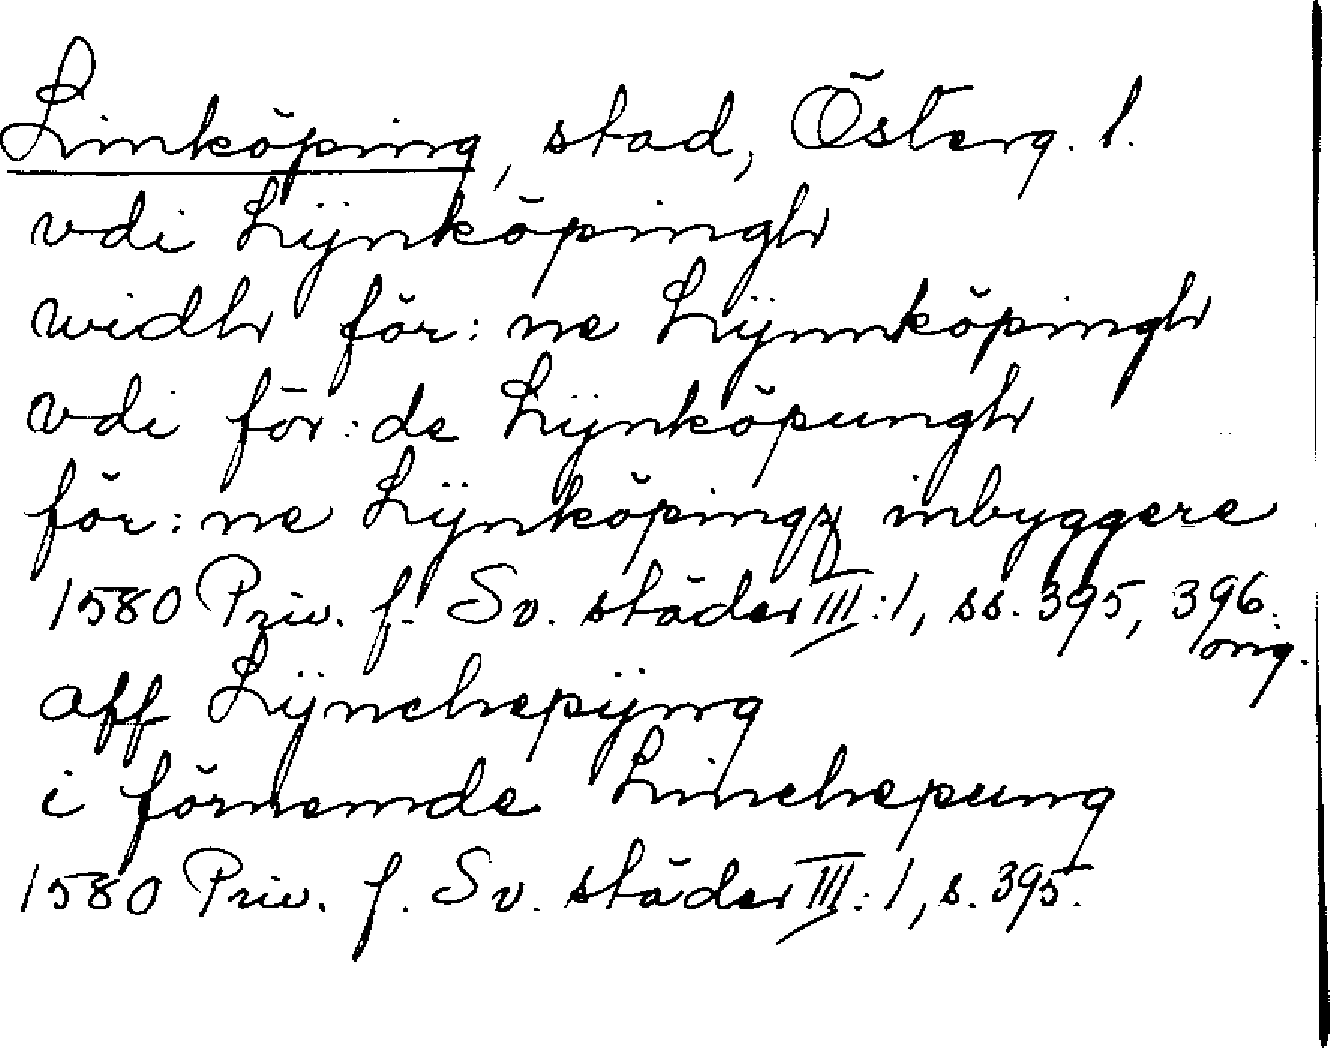 Linköping, stad, Österg. l.
vdi Lÿnköpingh
widh för:ne Lÿnnköpingh
vdi för:de Lÿnköpungh
för:ne Lÿnköpingz inbyggere
1580 Priv. f. Sv. städer III:1, ss. 395, 396.
orig.
aff Lÿnchepÿng
i förnemde Linchepung
1580 Priv. f. Sv. städer III:1, s. 395.